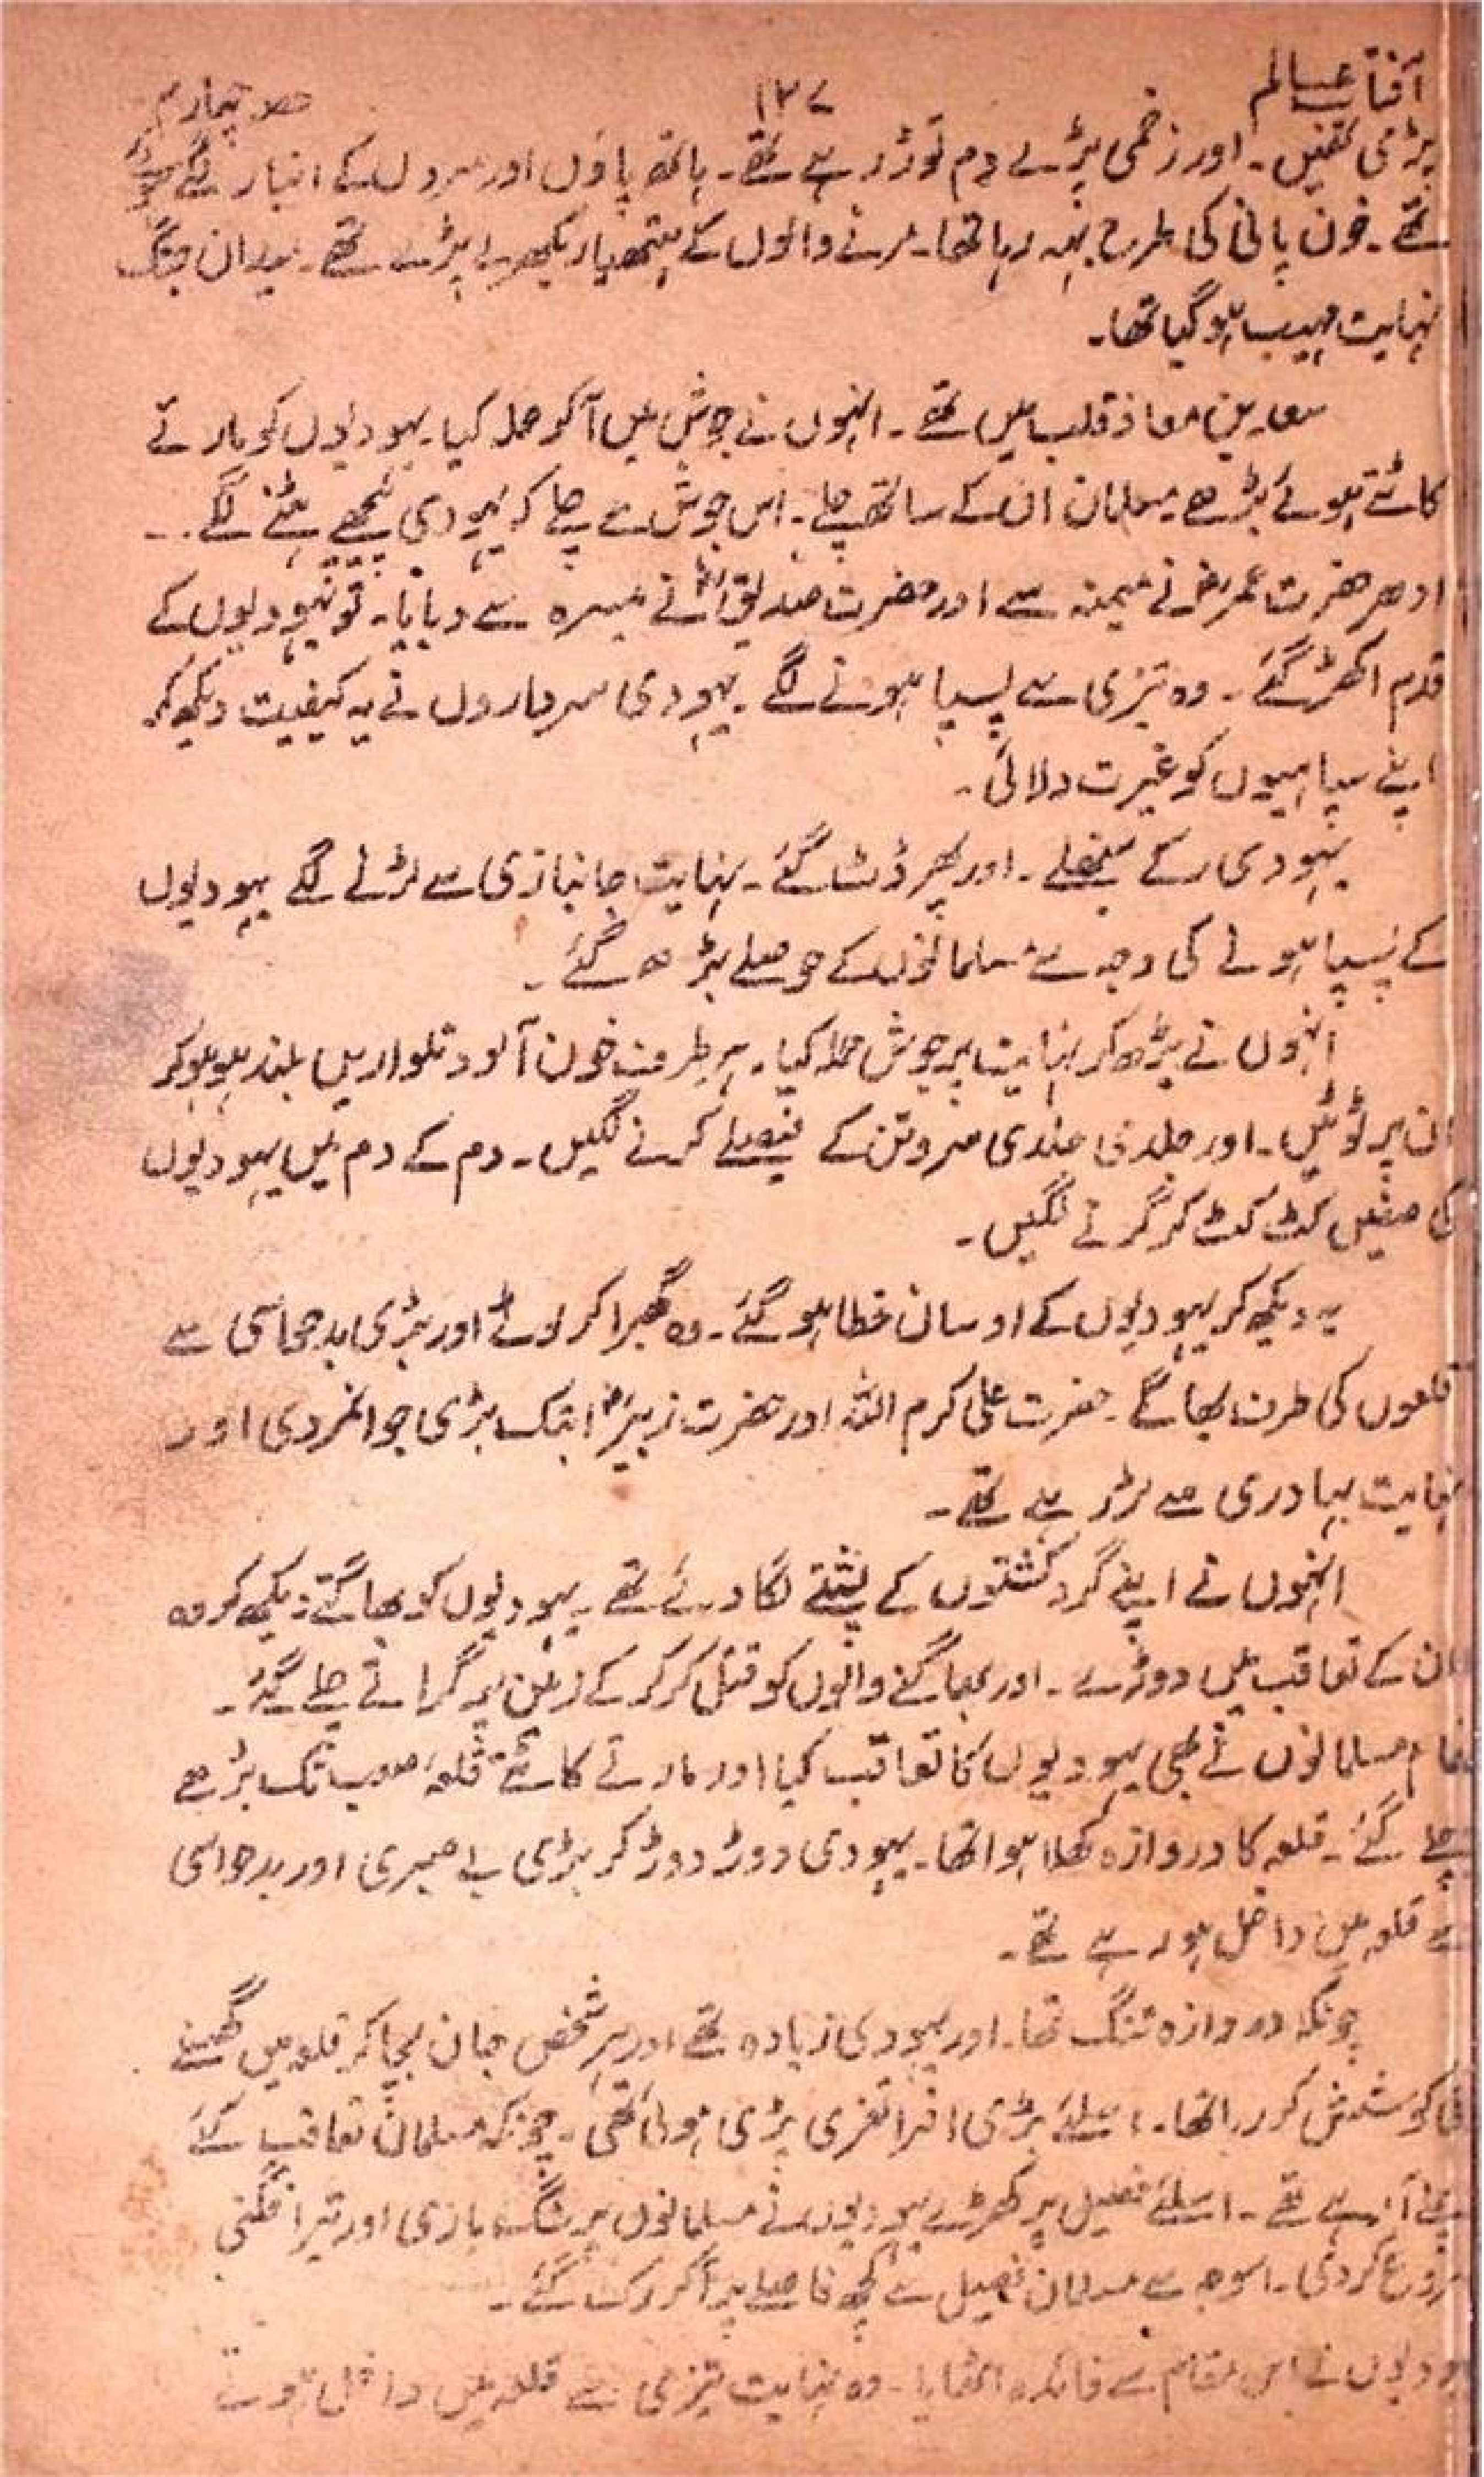 آفتاب عالم ۱۲۷ حصہ چہارم
پڑی تھیں۔ اور زخمی پڑے دم توڑ رہے تھے۔ ہاتھ پاؤں اور سروں کے انبار لگے ہوئے
تھے۔ خون پانی کی طرح بہہ رہا تھا۔ مرنے والوں کے ہتھیار بکھرے پڑے تھے۔ میدان جنگ
نہایت مہیب ہو گیا تھا۔
سعد بن معاذ قلب میں تھے۔ انہوں نے جوش میں آ کر حملہ کیا۔ یہودیوں کو مارتے
کاٹتے ہوئے بڑھے۔ مسلمان ان کے ساتھ چلے۔ اس جوش سے چلے کہ یہودی پیچھے ہٹنے لگے۔
ادھر حضرت عمرؓ نے میمنہ سے اور حضرت صدیقؓ نے میسرہ سے دبایا۔ تو یہودیوں کے
قدم اکھڑ گئے۔ وہ تیزی سے پسپا ہونے لگے۔ یہودی سرداروں نے یہ کیفیت دیکھ کر
اپنے سپاہیوں کو غیرت دلائی۔
یہودی رکے سنبھلے۔ اور پھر ڈٹ گئے۔ نہایت جانبازی سے لڑنے لگے یہودیوں
کے پسپا ہونے کی وجہ سے مسلمانوں کے حوصلے بڑھ گئے۔
انہوں نے بڑھ کر نہایت پر جوش حملہ کیا۔ ہر طرف خون آلود تلواریں بلند ہو ہو کر
ان پر ٹوٹیں۔ اور جلدی جلدی سروتن کے فیصلے کرنے لگیں۔ دم کے دم میں یہودیوں
کی صفیں کٹ کٹ کر گرنے لگیں۔
یہ دیکھ کر یہودیوں کے اوسان خطا ہو گئے۔ وہ گھبرا کر لوٹے اور بڑی بدحواسی سے
قلعوں کی طرف بھاگے۔ حضرت علی کرم اللہ اور حضرت زبیرؓ ابتک بڑی جوانمردی اور
نہایت بہادری سے لڑ رہے تھے۔
انہوں نے اپنے گرد کشتوں کے پشتے لگا دئے تھے۔ یہودیوں کو بھاگتے دیکھ کر وہ
ان کے تعاقب میں دوڑے۔ اور بھاگنے والوں کو قتل کر کر کے زمین پر گراتے چلے گئے۔
تمام مسلمانوں نے بھی یہودیوں کا تعاقب کیا اور مارتے کاٹتے قلعہ صعب تک بڑھے
چلے گئے۔ قلعہ کا دروازہ کھلا ہوا تھا۔ یہودی دوڑ دوڑ کر بڑی بے صبری اور بدحواسی
سے قلعہ میں داخل ہو رہے تھے۔
چونکہ دروازہ تنگ تھا۔ اور یہودی زیادہ تھے اور ہر شخص جان بچا کر قلعہ میں گھسنے
کی کوشش کر رہا تھا۔ اسلئے بڑی افراتفری پڑی ہوئی تھی۔ چونکہ مسلمان تعاقب کئے
چلے آ رہے تھے۔ اسلئے فصیل پر کھڑے یہودیوں نے مسلمانوں پر سنگ بازی اور تیر افگنی
شروع کر دی۔ اسوجہ سے مسلمان فصیل سے کچھ فاصلے پر آ کر رک گئے۔
یہودیوں نے اس مقام سے فائدہ اٹھایا۔ وہ نہایت تیزی سے قلعہ میں داخل ہوتے